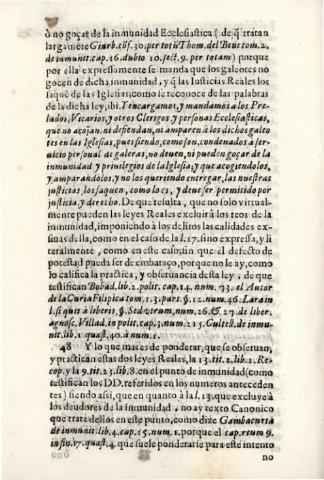 ò no goçar de la inmunidad Ecclesiastica ( de q̃ tratan
largamẽte Giurb. cõs. 30. per totũ Thom. del Bene tom. 2.
de inmunit. cap. 16. dubio 10. sect. 9. per totam) porque
por ella expressamente se manda que los galeotes no
gocen de dicha inmunidad, y q̃ las Iusticias Reales los
saquẽ de las Iglesias; como se reconoce de las palabras
de la dicha ley, ibi. Y encargamos, y mandamos a los Pre-
lados, Vicarios, y otros Clerigos y personas Ecclesiasticas,
que no acojan, ni defiendan, ni amparen à los dichos galeo
tes en las Iglesias, pues siendo, como son, condenados a ser-
uicio personal de galeras, no deuen, ni pueden goçar de la
inmunidad y priuilegios de la Iglesia, y que acogiendolos,
y amparandolos, y no los queriendo entregar, las nuestras
justicias, los saquen, como lo es, y deue ser permitido por
justicia, y derecho. De que resulta, que no solo virtual-
mente pueden las leyes Reales excluir à los reos de la
inmunidad, imponiendo à los delitos las calidades ex-
clusiuas della, como en el caso de la l. 17. sino expressa, y li
teralmente, como en este caso; sin que el defecto de
potestad pueda ser de embaraço, porque no le ay, como
lo califica la practica, y obseruancia desta ley; de que
testifican Bobad. lib. 2. polit. cap. 14. num. 73. el Autor
de la Curia Filipica tom. 1. 3. part. §. 12. num. 46. Lara in
l. si quis à liberis §. Sed utrum, num. 26. & 27. de liber.
agnosc. Villad. in polit. cap. 3. num. 213. Guttell. de inmu-
nit. lib. 1. quæst. 40. à num. 1.
48 Y lo que mas es de ponderar, que se obseruan,
y practican estas dos leyes Reales, la 13. tit. 2. lib. 1. Re-
cop. y la 9. tit. 23. lib. 8. en el punto de inmunidad (como
testifican los DD. referidos en los numeros anteceden
tes) siendo assi, que en quanto à la l. 13. que excluye à
los deudores de la inmunidad, no ay texto Canonico
que trate dellos en este punto, como dize Gambacurta
de inmunit. lib. 4. cap. 15. num. 1. porque el cap. reum 9.
in fin. 17. quæst. 4. que suele ponderarse para este intento
no